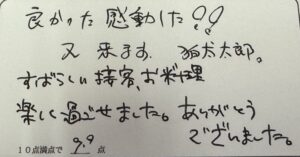 良かった 感動した!!
又 来ます。 狛犬太郎。
すばらしい接客、お料理
楽しく過ごせました。ありがとう
ございました。
10点満点で 9.9 点